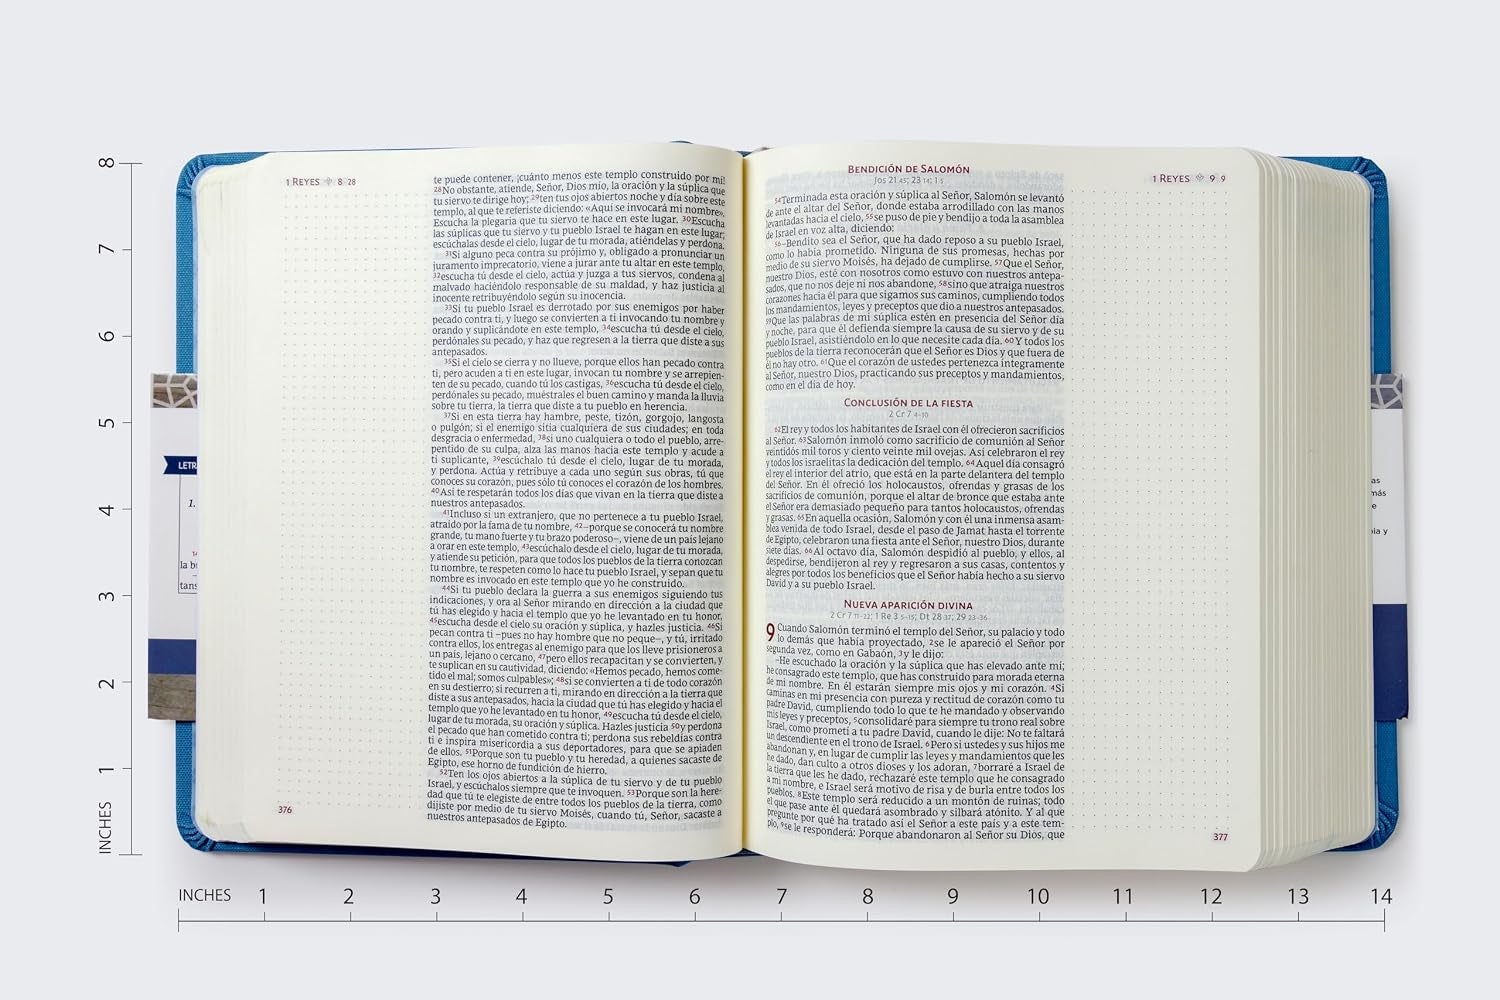 1 Reyes 8 28
te puede contener, ¡cuánto menos este templo construido por mí!
28No obstante, atiende, Señor, Dios mío, la oración y la súplica que
tu siervo te dirige hoy; 29ten tus ojos abiertos noche y día sobre este
templo, al que te referiste diciendo: «Aquí se invocará mi nombre».
Escucha la plegaria que tu siervo te hace en este lugar. 30Escucha
las súplicas que tu siervo y tu pueblo Israel te hagan en este lugar;
escúchalas desde el cielo, lugar de tu morada, atiéndelas y perdona.
31Si alguno peca contra su prójimo y, obligado a pronunciar un
juramento imprecatorio, viene a jurar ante tu altar en este templo,
32escucha tú desde el cielo, actúa y juzga a tus siervos, condena al
malvado haciéndolo responsable de su maldad, y haz justicia al
inocente retribuyéndolo según su inocencia.
33Si tu pueblo Israel es derrotado por sus enemigos por haber
pecado contra ti, y luego se convierten a ti invocando tu nombre y
orando y suplicándote en este templo, 34escucha tú desde el cielo,
perdónales su pecado, y haz que regresen a la tierra que diste a sus
antepasados.
35Si el cielo se cierra y no llueve, porque ellos han pecado contra
ti, pero acuden a ti en este lugar, invocan tu nombre y se arrepien-
ten de su pecado, cuando tú los castigas, 36escucha tú desde el cielo,
perdónales su pecado, muéstrales el buen camino y manda la lluvia
sobre tu tierra, la tierra que diste a tu pueblo en herencia.
37Si en esta tierra hay hambre, peste, tizón, gorgojo, langosta
o pulgón; si el enemigo sitia cualquiera de sus ciudades; en toda
desgracia o enfermedad, 38si uno cualquiera o todo el pueblo, arre-
pentido de su culpa, alza las manos hacia este templo y acude a
ti suplicante, 39escúchalo tú desde el cielo, lugar de tu morada,
y perdona. Actúa y retribuye a cada uno según sus obras, tú que
conoces su corazón, pues sólo tú conoces el corazón de los hombres.
40Así te respetarán todos los días que vivan en la tierra que diste a
nuestros antepasados.
41Incluso si un extranjero, que no pertenece a tu pueblo Israel,
atraído por la fama de tu nombre, 42–porque se conocerá tu nombre
grande, tu mano fuerte y tu brazo poderoso–, viene de un país lejano
a orar en este templo, 43escúchalo desde el cielo, lugar de tu morada,
y atiende su petición, para que todos los pueblos de la tierra conozcan
tu nombre, te respeten como lo hace tu pueblo Israel, y sepan que tu
nombre es invocado en este templo que yo he construido.
44Si tu pueblo declara la guerra a sus enemigos siguiendo tus
indicaciones, y ora al Señor mirando en dirección a la ciudad que
tú has elegido y hacia el templo que yo he levantado en tu honor,
45escucha desde el cielo su oración y súplica, y hazles justicia. 46Si
pecan contra ti –pues no hay hombre que no peque–, y tú, irritado
contra ellos, los entregas al enemigo para que los lleve prisioneros a
un país, lejano o cercano, 47pero ellos recapacitan y se convierten, y
te suplican en su cautividad, diciendo: «Hemos pecado, hemos come-
tido el mal; somos culpables»; 48si se convierten a ti de todo corazón
en su destierro; si recurren a ti, mirando en dirección a la tierra que
diste a sus antepasados, hacia la ciudad que tú has elegido y hacia el
templo que yo he levantado en tu honor, 49escucha tú desde el cielo,
lugar de tu morada, su oración y súplica. Hazles justicia 50y perdona
el pecado que han cometido contra ti; perdona sus rebeldías contra
ti e inspira misericordia a sus deportadores, para que se apiaden
de ellos. 51Porque son tu pueblo y tu heredad, a quienes sacaste de
Egipto, ese horno de fundición de hierro.
52Ten los ojos abiertos a la súplica de tu siervo y de tu pueblo
Israel, y escúchalos siempre que te invoquen. 53Porque son la here-
dad que tú te elegiste de entre todos los pueblos de la tierra, como
dijiste por medio de tu siervo Moisés, cuando tú, Señor, sacaste a
nuestros antepasados de Egipto.
376
1 Reyes 9 9
Bendición de Salomón
Jos 21 45; 23 14; 1 5
54Terminada esta oración y súplica al Señor, Salomón se levantó
de ante el altar del Señor, donde estaba arrodillado con las manos
levantadas hacia el cielo, 55se puso de pie y bendijo a toda la asamblea
de Israel en voz alta, diciendo:
56–Bendito sea el Señor, que ha dado reposo a su pueblo Israel,
como lo había prometido. Ninguna de sus promesas, hechas por
medio de su siervo Moisés, ha dejado de cumplirse. 57Que el Señor,
nuestro Dios, esté con nosotros como estuvo con nuestros antepa-
sados, que no nos deje ni nos abandone, 58sino que atraiga nuestros
corazones hacia él para que sigamos sus caminos, cumpliendo todos
los mandamientos, leyes y preceptos que dio a nuestros antepasados.
59Que las palabras de mi súplica estén en presencia del Señor día
y noche, para que él defienda siempre la causa de su siervo y de su
pueblo Israel, asistiéndolo en lo que necesite cada día. 60Y todos los
pueblos de la tierra reconocerán que el Señor es Dios y que fuera de
él no hay otro. 61Que el corazón de ustedes pertenezca íntegramente
al Señor, nuestro Dios, practicando sus preceptos y mandamientos,
como en el día de hoy.
Conclusión de la fiesta
2 Cr 7 4-10
62El rey y todos los habitantes de Israel con él ofrecieron sacrificios
al Señor. 63Salomón inmoló como sacrificio de comunión al Señor
veintidós mil toros y ciento veinte mil ovejas. Así celebraron el rey
y todos los israelitas la dedicación del templo. 64Aquel día consagró
el rey el interior del atrio, que está en la parte delantera del templo
del Señor. En él ofreció los holocaustos, ofrendas y grasas de los
sacrificios de comunión, porque el altar de bronce que estaba ante
el Señor era demasiado pequeño para tantos holocaustos, ofrendas
y grasas. 65En aquella ocasión, Salomón y con él una inmensa asam-
blea venida de todo Israel, desde el paso de Jamat hasta el torrente
de Egipto, celebraron una fiesta ante el Señor, nuestro Dios, durante
siete días. 66Al octavo día, Salomón despidió al pueblo, y ellos, al
despedirse, bendijeron al rey y regresaron a sus casas, contentos y
alegres por todos los beneficios que el Señor había hecho a su siervo
David y a su pueblo Israel.
Nueva aparición divina
2 Cr 7 11-22; 1 Re 3 5-15; Dt 28 37; 29 23-36
9 Cuando Salomón terminó el templo del Señor, su palacio y todo
lo demás que había proyectado, 2se le apareció el Señor por
segunda vez, como en Gabaón, 3y le dijo:
–He escuchado la oración y la súplica que has elevado ante mí;
he consagrado este templo, que has construido para morada eterna
de mi nombre. En él estarán siempre mis ojos y mi corazón. 4Si
caminas en mi presencia con pureza y rectitud de corazón como tu
padre David, cumpliendo todo lo que te he mandado y observando
mis leyes y preceptos, 5consolidaré para siempre tu trono real sobre
Israel, como prometí a tu padre David, cuando le dije: No te faltará
un descendiente en el trono de Israel. 6Pero si ustedes y sus hijos me
abandonan y, en lugar de cumplir las leyes y mandamientos que les
he dado, dan culto a otros dioses y los adoran, 7borraré a Israel de
la tierra que les he dado, rechazaré este templo que he consagrado
a mi nombre, e Israel será motivo de risa y de burla entre todos los
pueblos. 8Este templo será reducido a un montón de ruinas; todo
el que pase ante él quedará asombrado y silbará atónito. Y al que
pregunte por qué ha tratado así el Señor a este país y a este tem-
plo, 9se le responderá: Porque abandonaron al Señor su Dios, que
377
LETR
1.
14
la b
tans
as
más
e
ia y
8
7
6
5
4
3
2
1
INCHES
INCHES 1 2 3 4 5 6 7 8 9 10 11 12 13 14